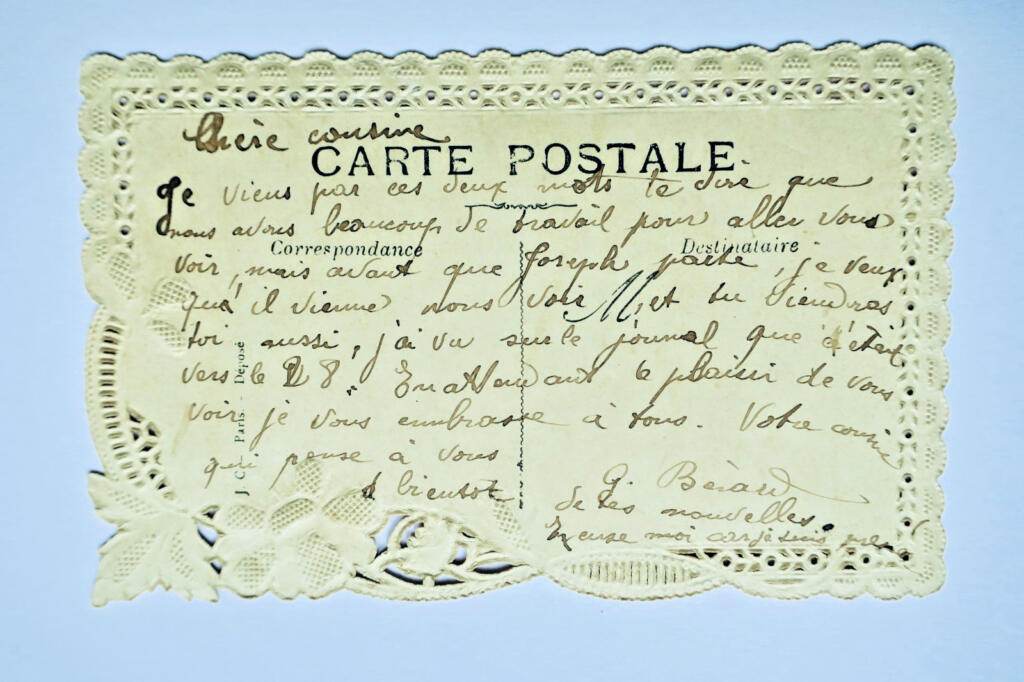 Chère cousine
CARTE POSTALE
Je viens par ces deux mots te dire que
nous avons beaucoup de travail pour aller vous
Correspondance
Destinataire
voir, mais avant que Joseph parte, je veux
qu'il vienne nous voir M et tu viendras
toi aussi, j'ai vu sur le journal que c'était
vers le 28. En attendant le plaisir de vous
voir je vous embrasse à tous. Votre cousine
qui pense à vous
à bientôt
G. Bérard
de tes nouvelles.
Excuse moi car je suis
J. C. Paris. - Déposé